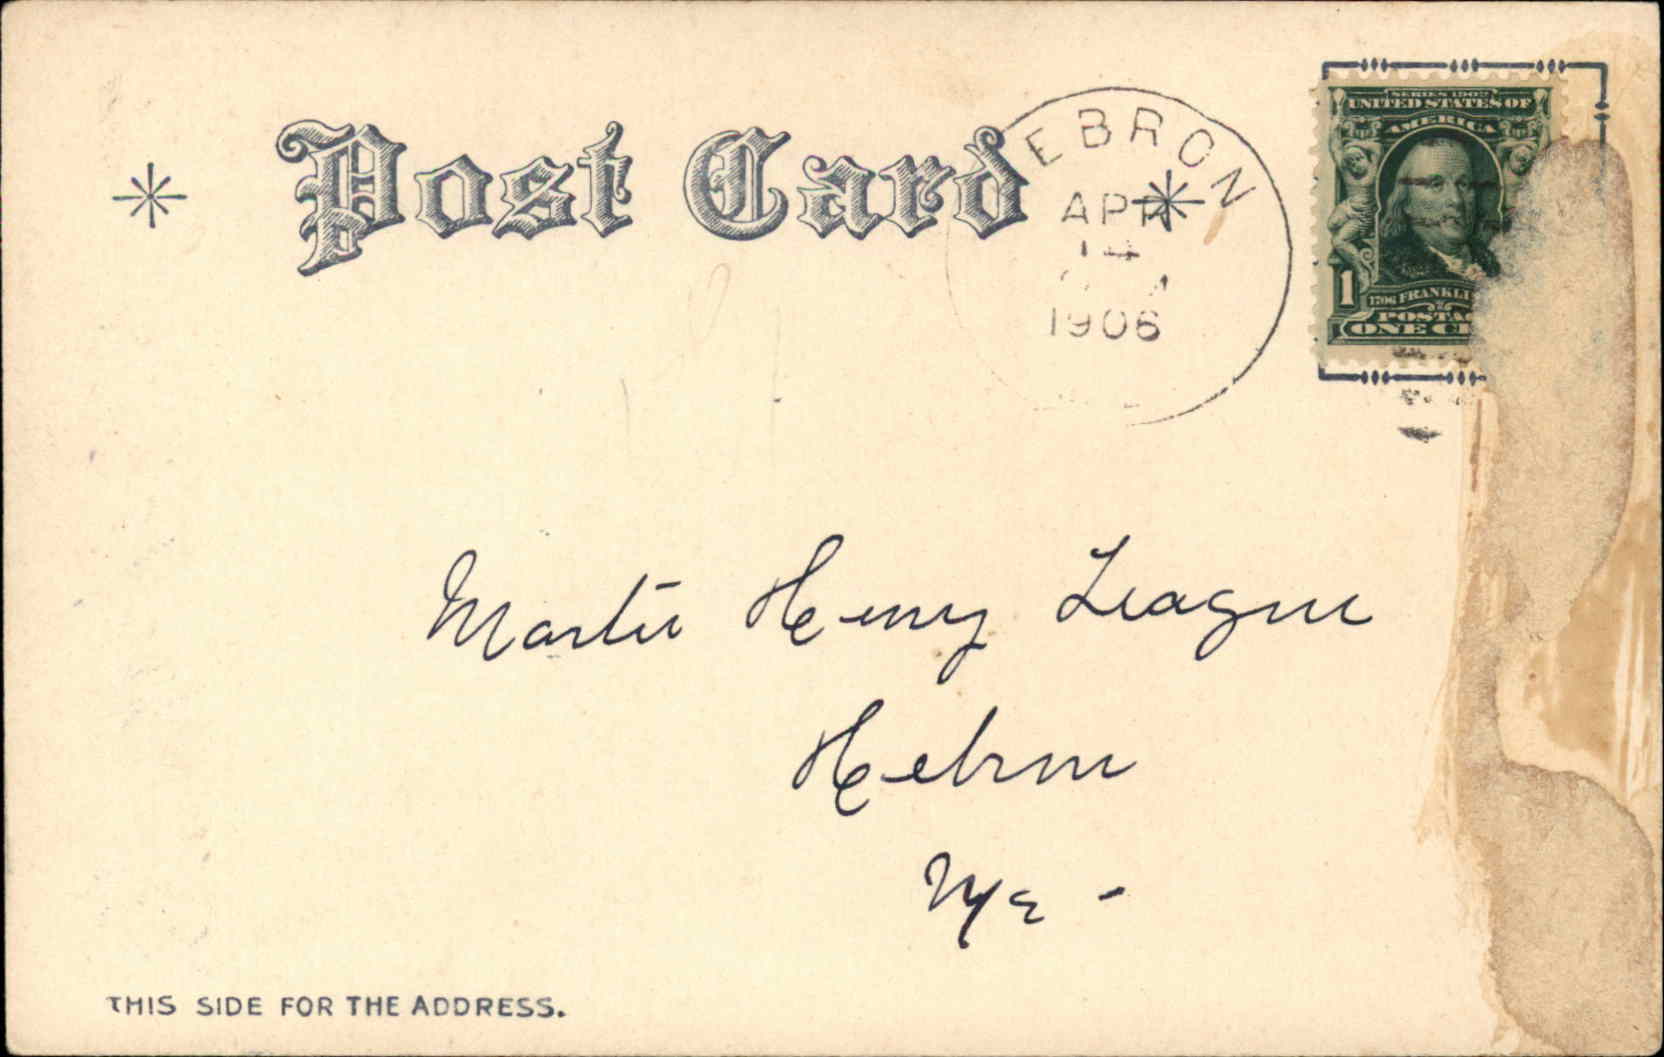 Post Card
EBRON
APR
14
1906
SERIES 1902
UNITED STATES OF
AMERICA
1
1706 FRANKLI
POSTAG
ONE CE
Master Henry Teague
Hebron
Me -
THIS SIDE FOR THE ADDRESS.